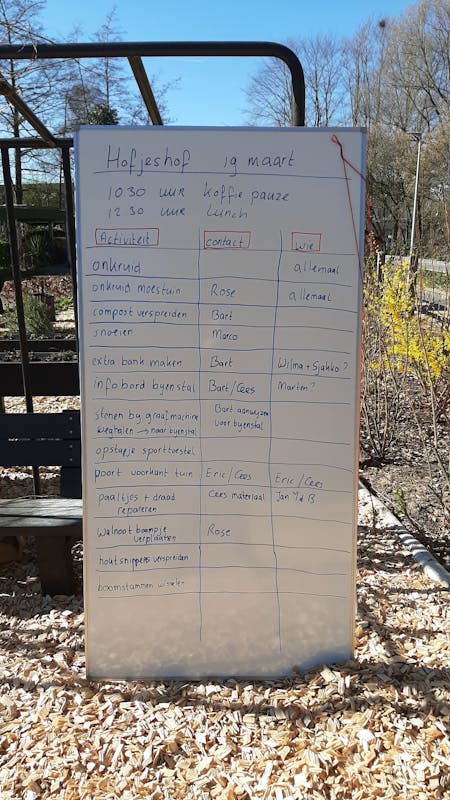 Hofjeshof 19 maart
10 30 uur koffie pauze
12 30 uur Lunch
Activiteit contact wie
onkruid allemaal
onkruid moestuin Rose allemaal
compost verspreiden Bart
snoeien Marco
extra bank maken Bart Wilma + Sjakko?
infobord byenstal Bart/Cees Marten?
stenen by graafmachine Bart aanwyzen
weghalen → naar byenstal voor byenstal
opstapje sporttoestel
poort voorkant tuin Eric/Cees Eric/Cees
paaltjes + draad Cees materiaal Jan
repareren
walnoot boompje Rose
verplaatsen
houtsnippers verspreiden
boomstammen wisselen